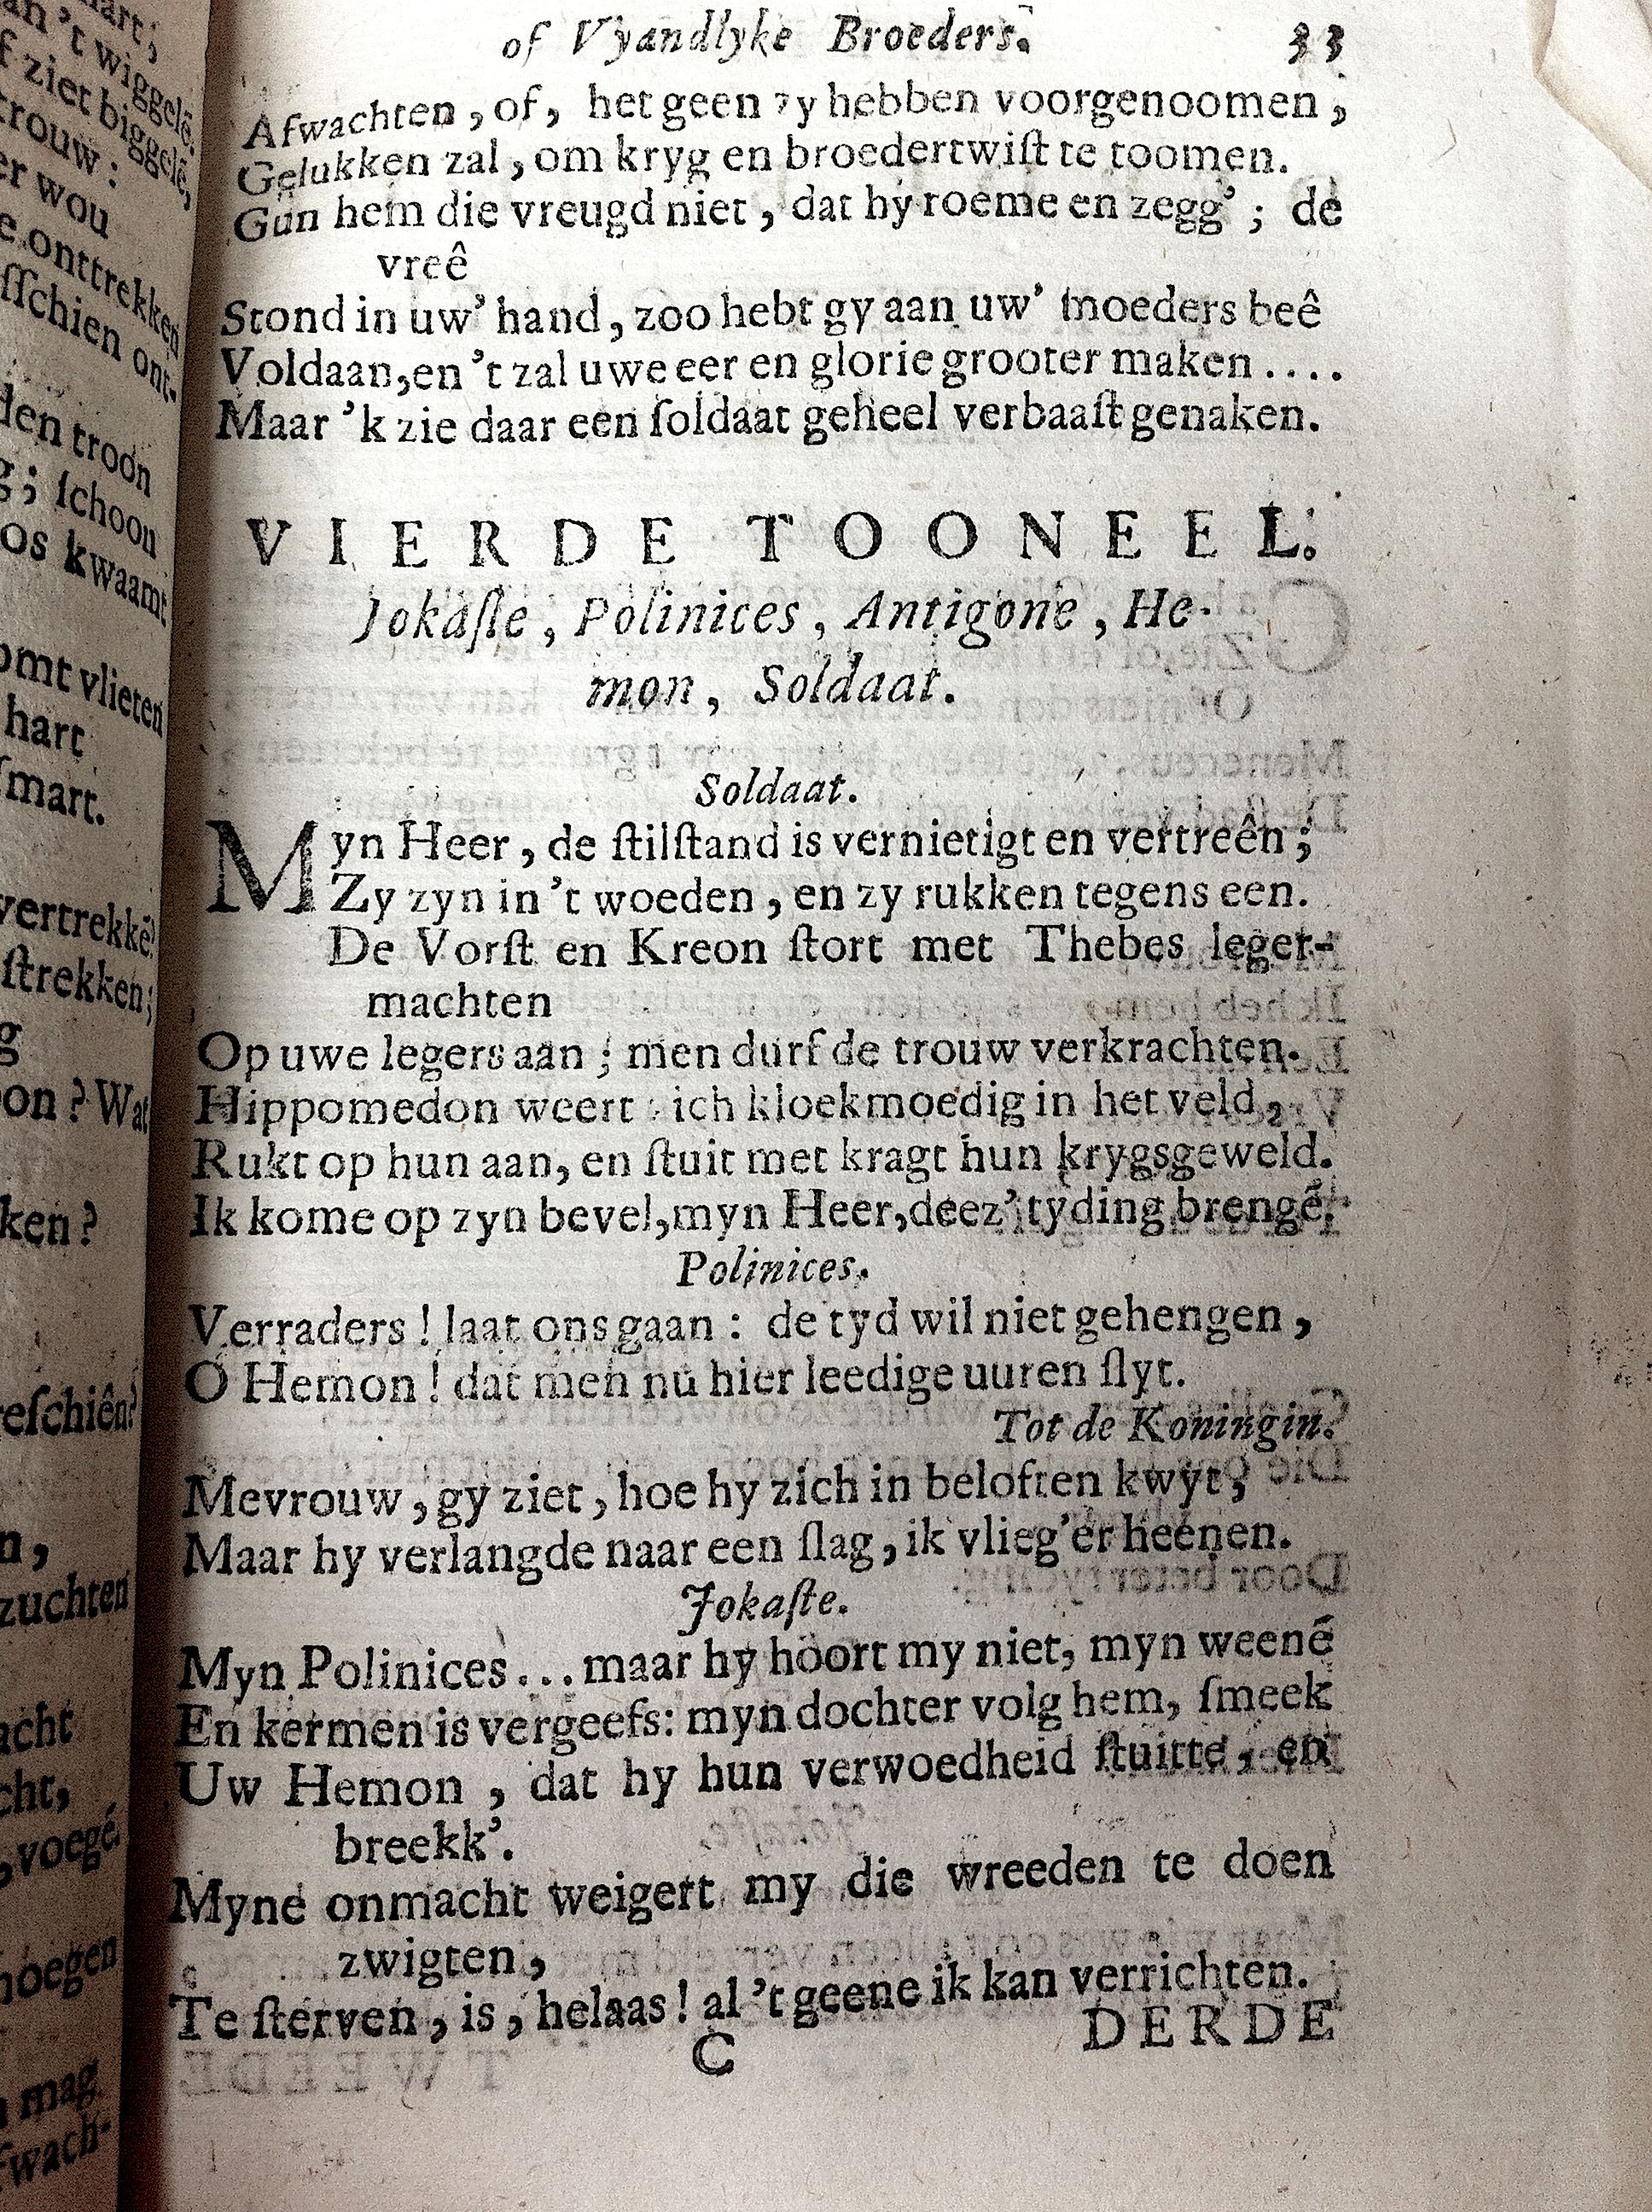 of Vyandlyke Broeders. 33
Afwachten, of, het geen zy hebben voorgenoomen,
Gelukken zal, om kryg en broedertwiſt te toomen.
Gun hem die vreugd niet, dat hy roeme en zegg'; de
vreê
Stond in uw' hand, zoo hebt gy aan uw' moeders beê
Voldaan, en 't zal uwe eer en glorie grooter maken....
Maar 'k zie daar een ſoldaat geheel verbaaſt genaken.
VIERDE TOONEEL.
Jokaſte, Polinices, Antigone, He-
mon, Soldaat.
Soldaat.
Myn Heer, de ſtilſtand is vernietigt en vertreên;
Zy zyn in 't woeden, en zy rukken tegens een.
De Vorſt en Kreon ſtort met Thebes leger-
machten
Op uwe legers aan; men durf de trouw verkrachten.
Hippomedon weert zich kloekmoedig in het veld,
Rukt op hun aan, en ſtuit met kragt hun krygsgeweld.
Ik kome op zyn bevel, myn Heer, deez' tyding brengē.
Polinices.
Verraders! laat ons gaan: de tyd wil niet gehengen,
O Hemon! dat men nu hier leedige uuren ſlyt.
Tot de Koningin.
Mevrouw, gy ziet, hoe hy zich in beloften kwyt;
Maar hy verlangde naar een ſlag, ik vlieg'er heenen.
Jokaſte.
Myn Polinices... maar hy hoort my niet, myn weenē
En kermen is vergeefs: myn dochter volg hem, ſmeek
Uw Hemon, dat hy hun verwoedheid ſtuitte, en
breekk'.
Myne onmacht weigert my die wreeden te doen
zwigten,
Te ſterven, is, helaas! al 't geene ik kan verrichten.
C DERDE